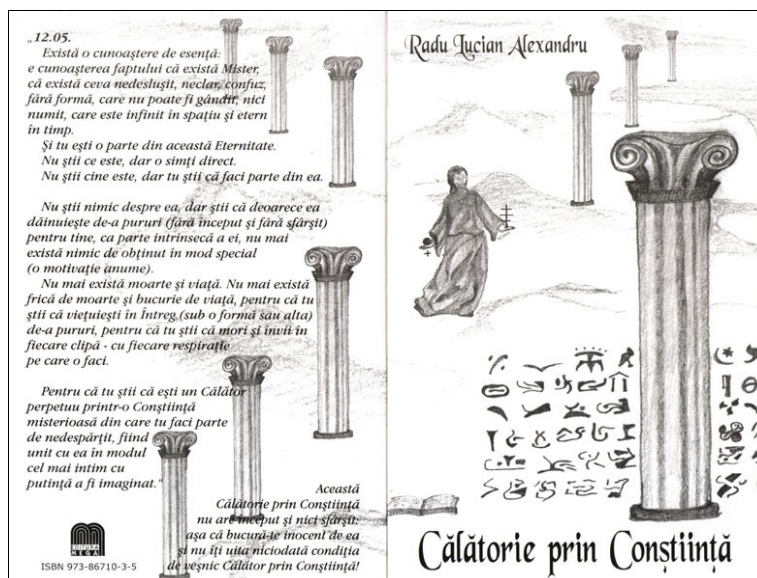 „12.05.
Există o cunoaştere de esenţă:
e cunoaşterea faptului că există Mister,
că există ceva nedesluşit, neclar, confuz,
fără formă, care nu poate fi gândit, nici
numit, care este infinit în spaţiu şi etern
în timp.
Şi tu eşti o parte din această Eternitate.
Nu ştii ce este, dar o simţi direct.
Nu ştii cine este, dar tu ştii că faci parte din ea.
Nu ştii nimic despre ea, dar ştii că deoarece ea
dăinuieşte de-a pururi (fără început şi fără sfârşit)
pentru tine, ca parte intrinsecă a ei, nu mai
există nimic de obţinut în mod special
(o motivaţie anume).
Nu mai există moarte şi viaţă. Nu mai există
frică de moarte şi bucurie de viaţă, pentru că tu
ştii că vieţuieşti în Întreg,(sub o formă sau alta)
de-a pururi, pentru că tu ştii că mori şi învii în
fiecare clipă - cu fiecare respiraţie
pe care o faci.
Pentru că tu ştii că eşti un Călător
perpetuu printr-o Conştiinţă
misterioasă din care tu faci parte
de nedespărţit, fiind
unit cu ea în modul
cel mai intim cu
putinţă a fi imaginat.“
Această
Călătorie prin Conştiinţă
nu are început şi nici sfârşit:
aşa că bucură-te inocent de ea
şi nu îţi uita niciodată condiţia
de veşnic Călător prin Conştiinţă!
EDITURA
MEGA
ISBN 973-86710-3-5
Radu Lucian Alexandru
Călătorie prin Conştiinţă